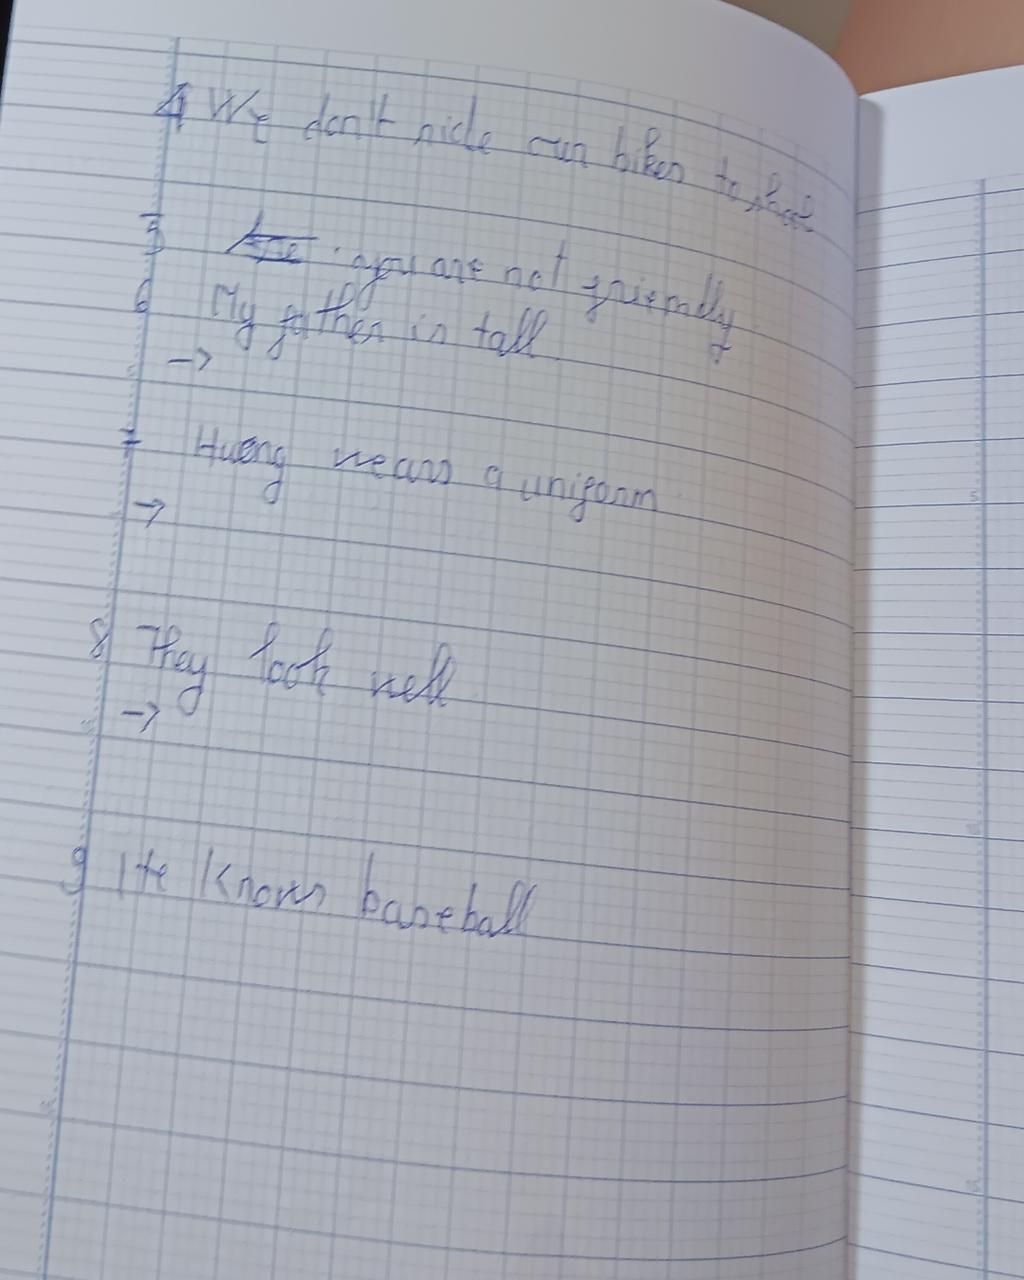 4 We don't ride our bikes to shool
5 Are you are not friendly
6 My father is tall
->
7 Hueng wears a uniform
->
8 They look well
->
9 He knows baseball